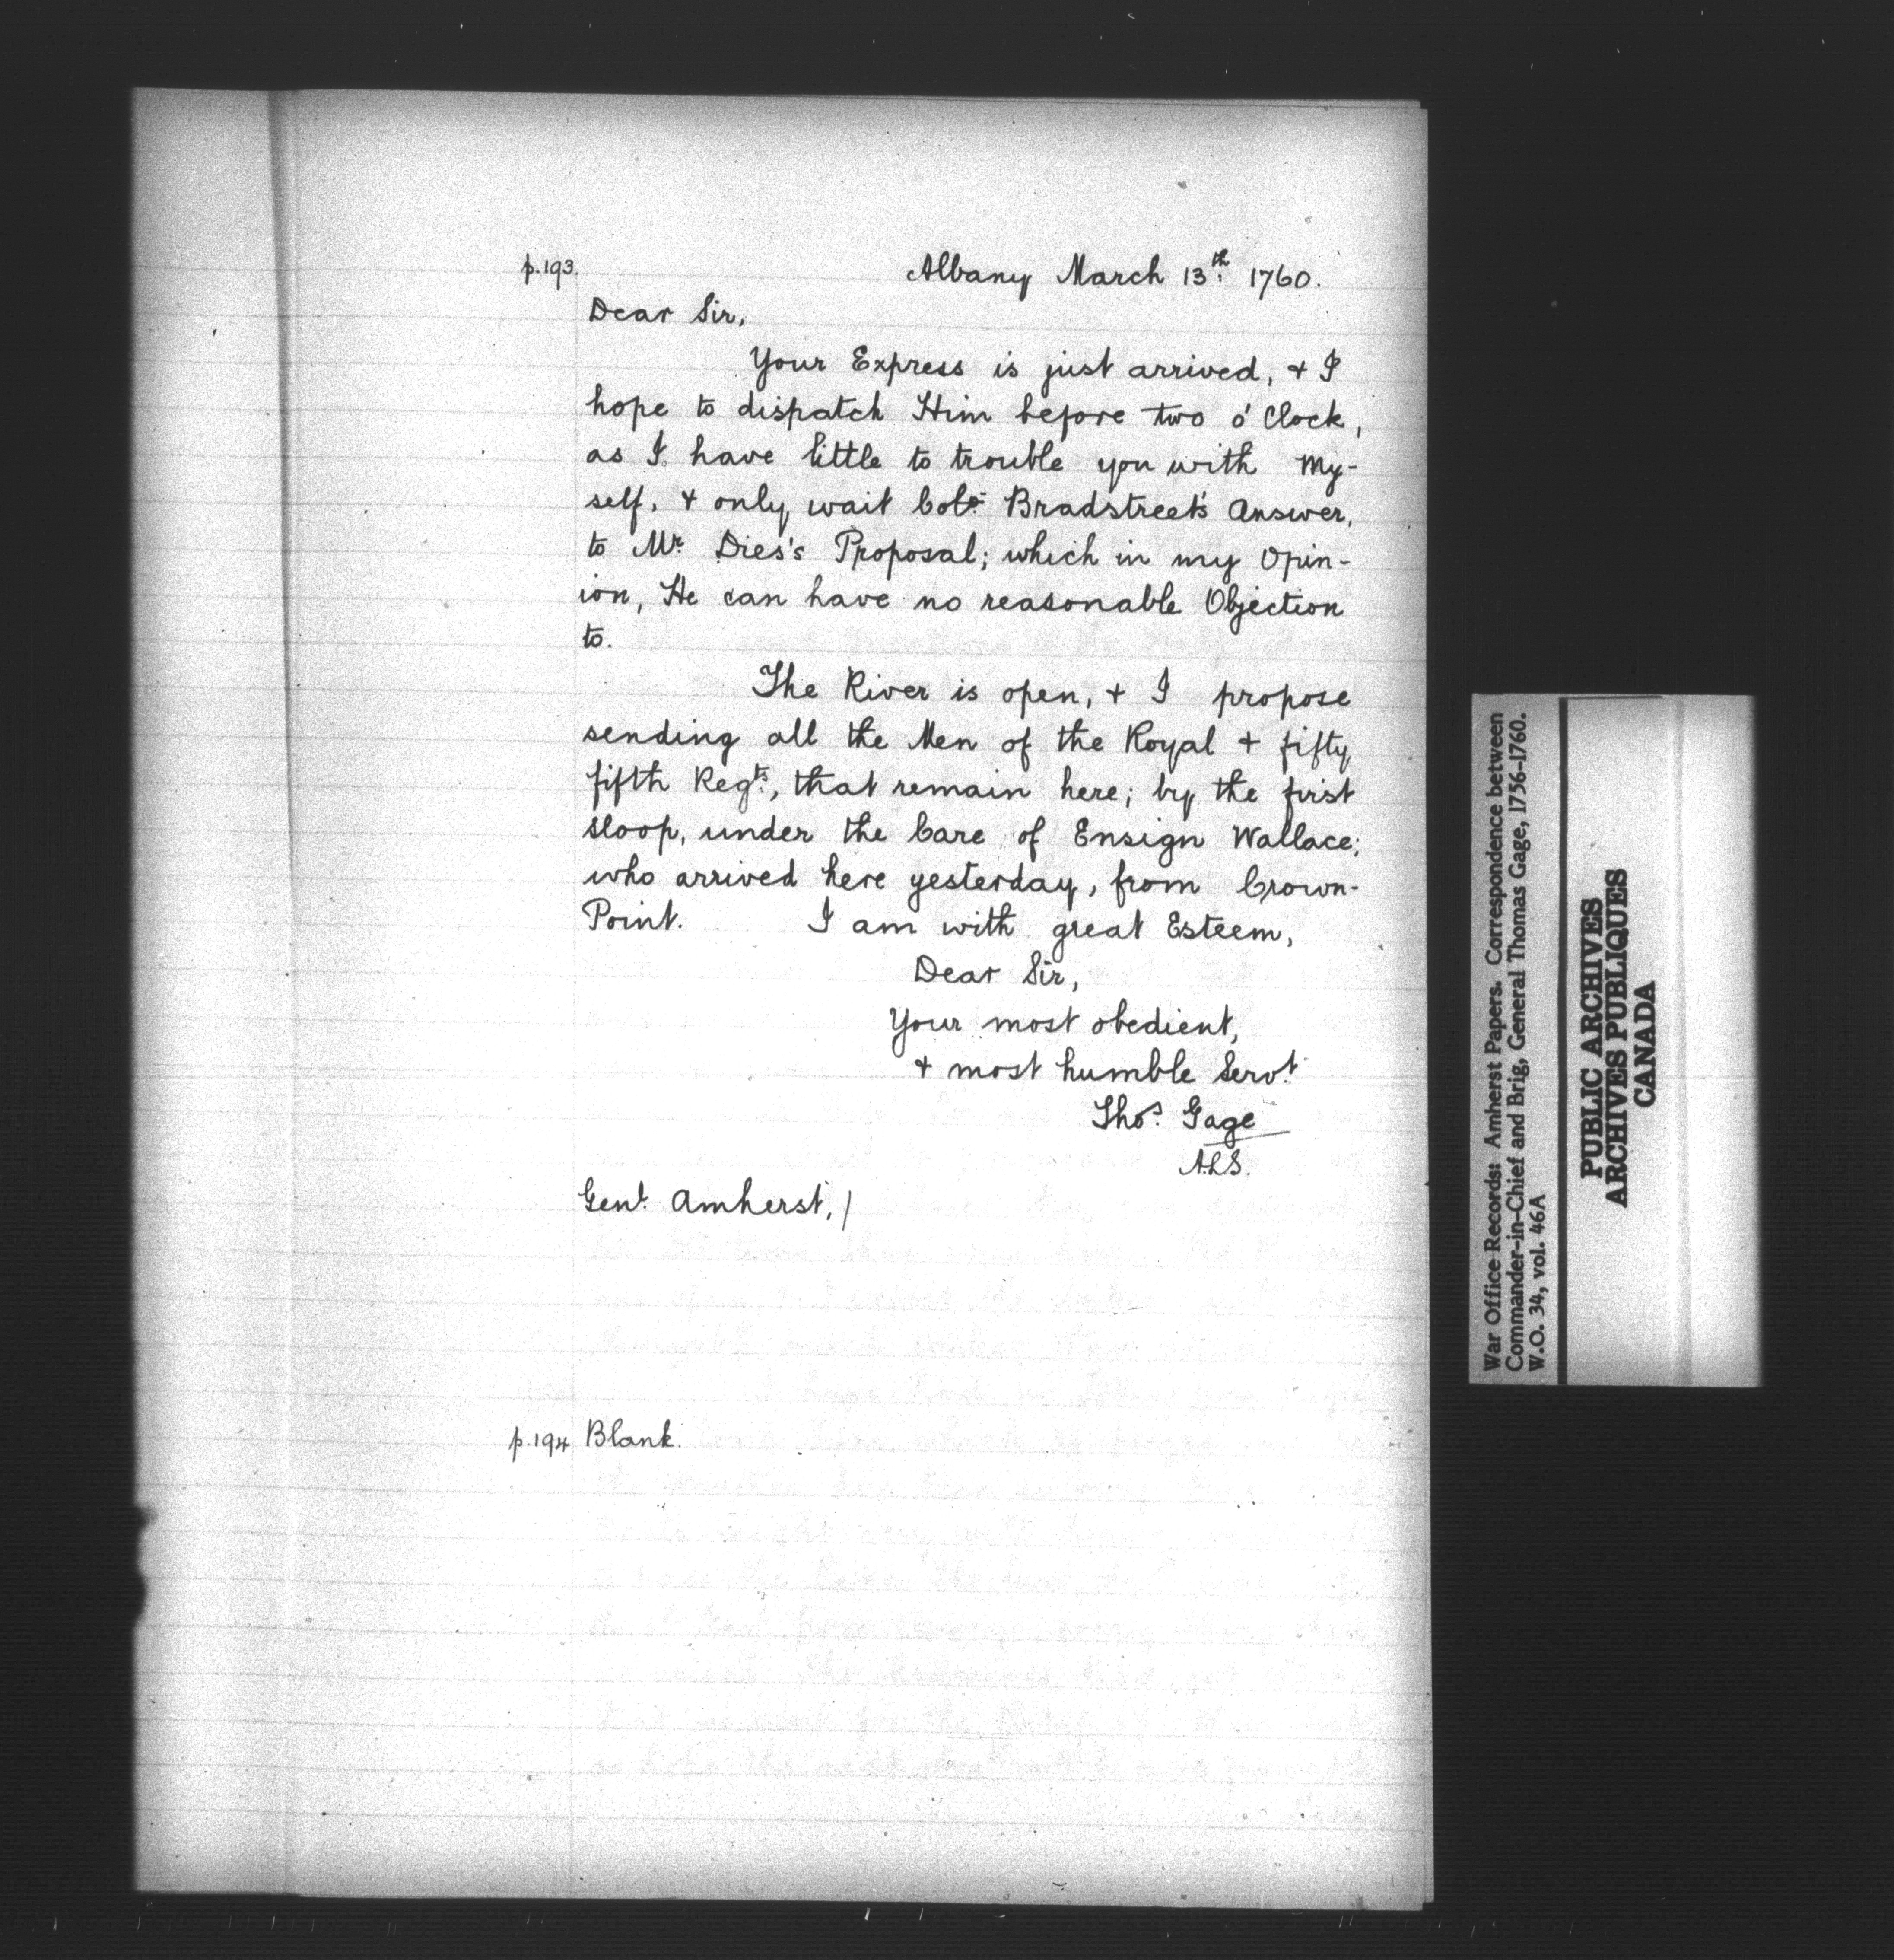 p.193. Albany March 13th. 1760.
Dear Sir,
Your Express is just arrived, & I
hope to dispatch Him before two o'Clock,
as I have little to trouble you with My-
self, & only wait Colo. Bradstreet's Answer,
to Mr. Dies's Proposal; which in my Opin-
ion, He can have no reasonable Objection
to.
The River is open, & I propose
sending all the Men of the Royal & fifty
fifth Regts., that remain here; by the first
Sloop, under the Care of Ensign Wallace;
who arrived here yesterday, from Crown-
Point. I am with great Esteem,
Dear Sir,
Your most obedient,
& most humble Servt.
Thos. Gage
A.L.S.
Genl. Amherst,/
p.194 Blank.
War Office Records: Amherst Papers. Correspondence between
Commander-in-Chief and Brig. General Thomas Gage, 1756-1760.
W.O. 34, vol. 46A
PUBLIC ARCHIVES
ARCHIVES PUBLIQUES
CANADA